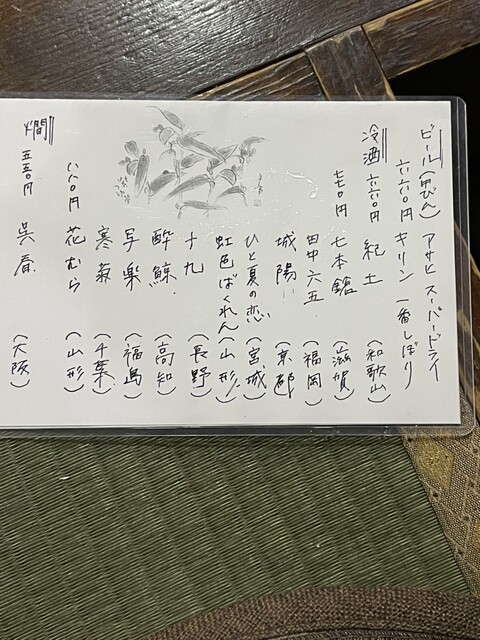 ビール(中びん) アサヒ スーパードライ
六六〇円 キリン 一番しぼり
冷酒 六六〇円 紀土 (和歌山)
七七〇円 七本鎗 (滋賀)
田中六五 (福岡)
城陽 (京都)
ひと夏の恋 (宮城)
虹色ばくれん (山形)
十九 (長野)
酔鯨 (高知)
写楽 (福島)
寒菊 (千葉)
八八〇円 花むら (山形)
燗 五五〇円 呉春 (大阪)